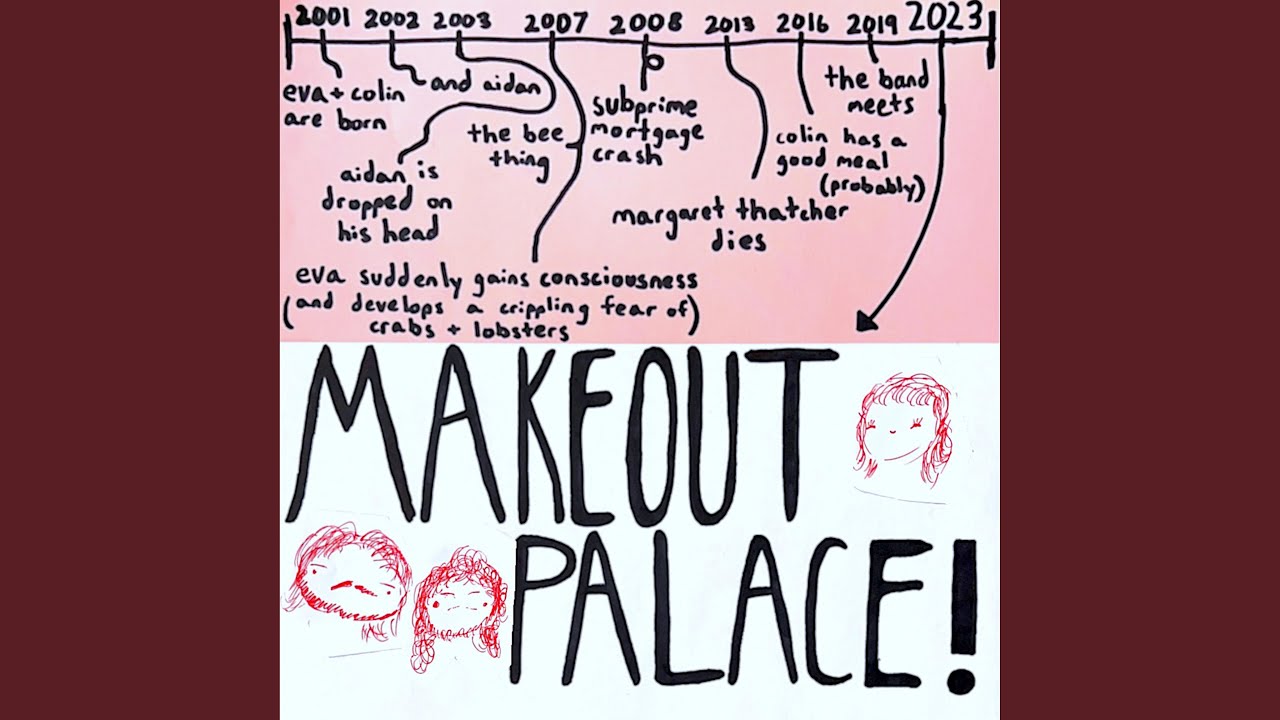 2001 2002 2003 2007 2008 2013 2016 2019 2023
eva + colin
are born
and aidan
aidan is
dropped on
his head
the bee
thing
eva suddenly gains consciousness
(and develops a crippling fear of)
crabs + lobsters
subprime
mortgage
crash
margaret thatcher
dies
colin has a
good meal
(probably)
the band
meets
MAKEOUT
PALACE!